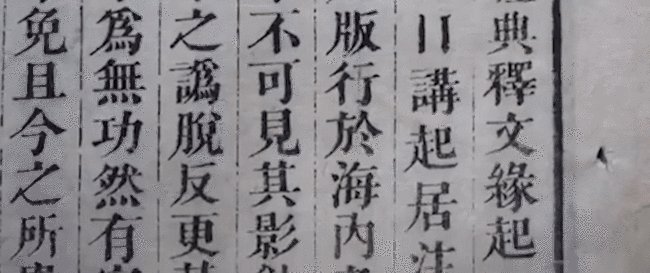 典釋文緣起
日講起居注
版行於海內
不可見其影
之譌脫反更
爲無功然有
免且今之所